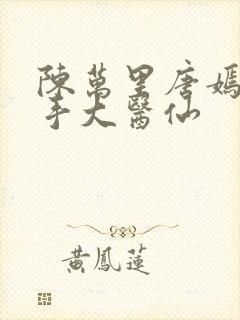 陳萬里唐嫣
手大醫仙
黃鳳蓮